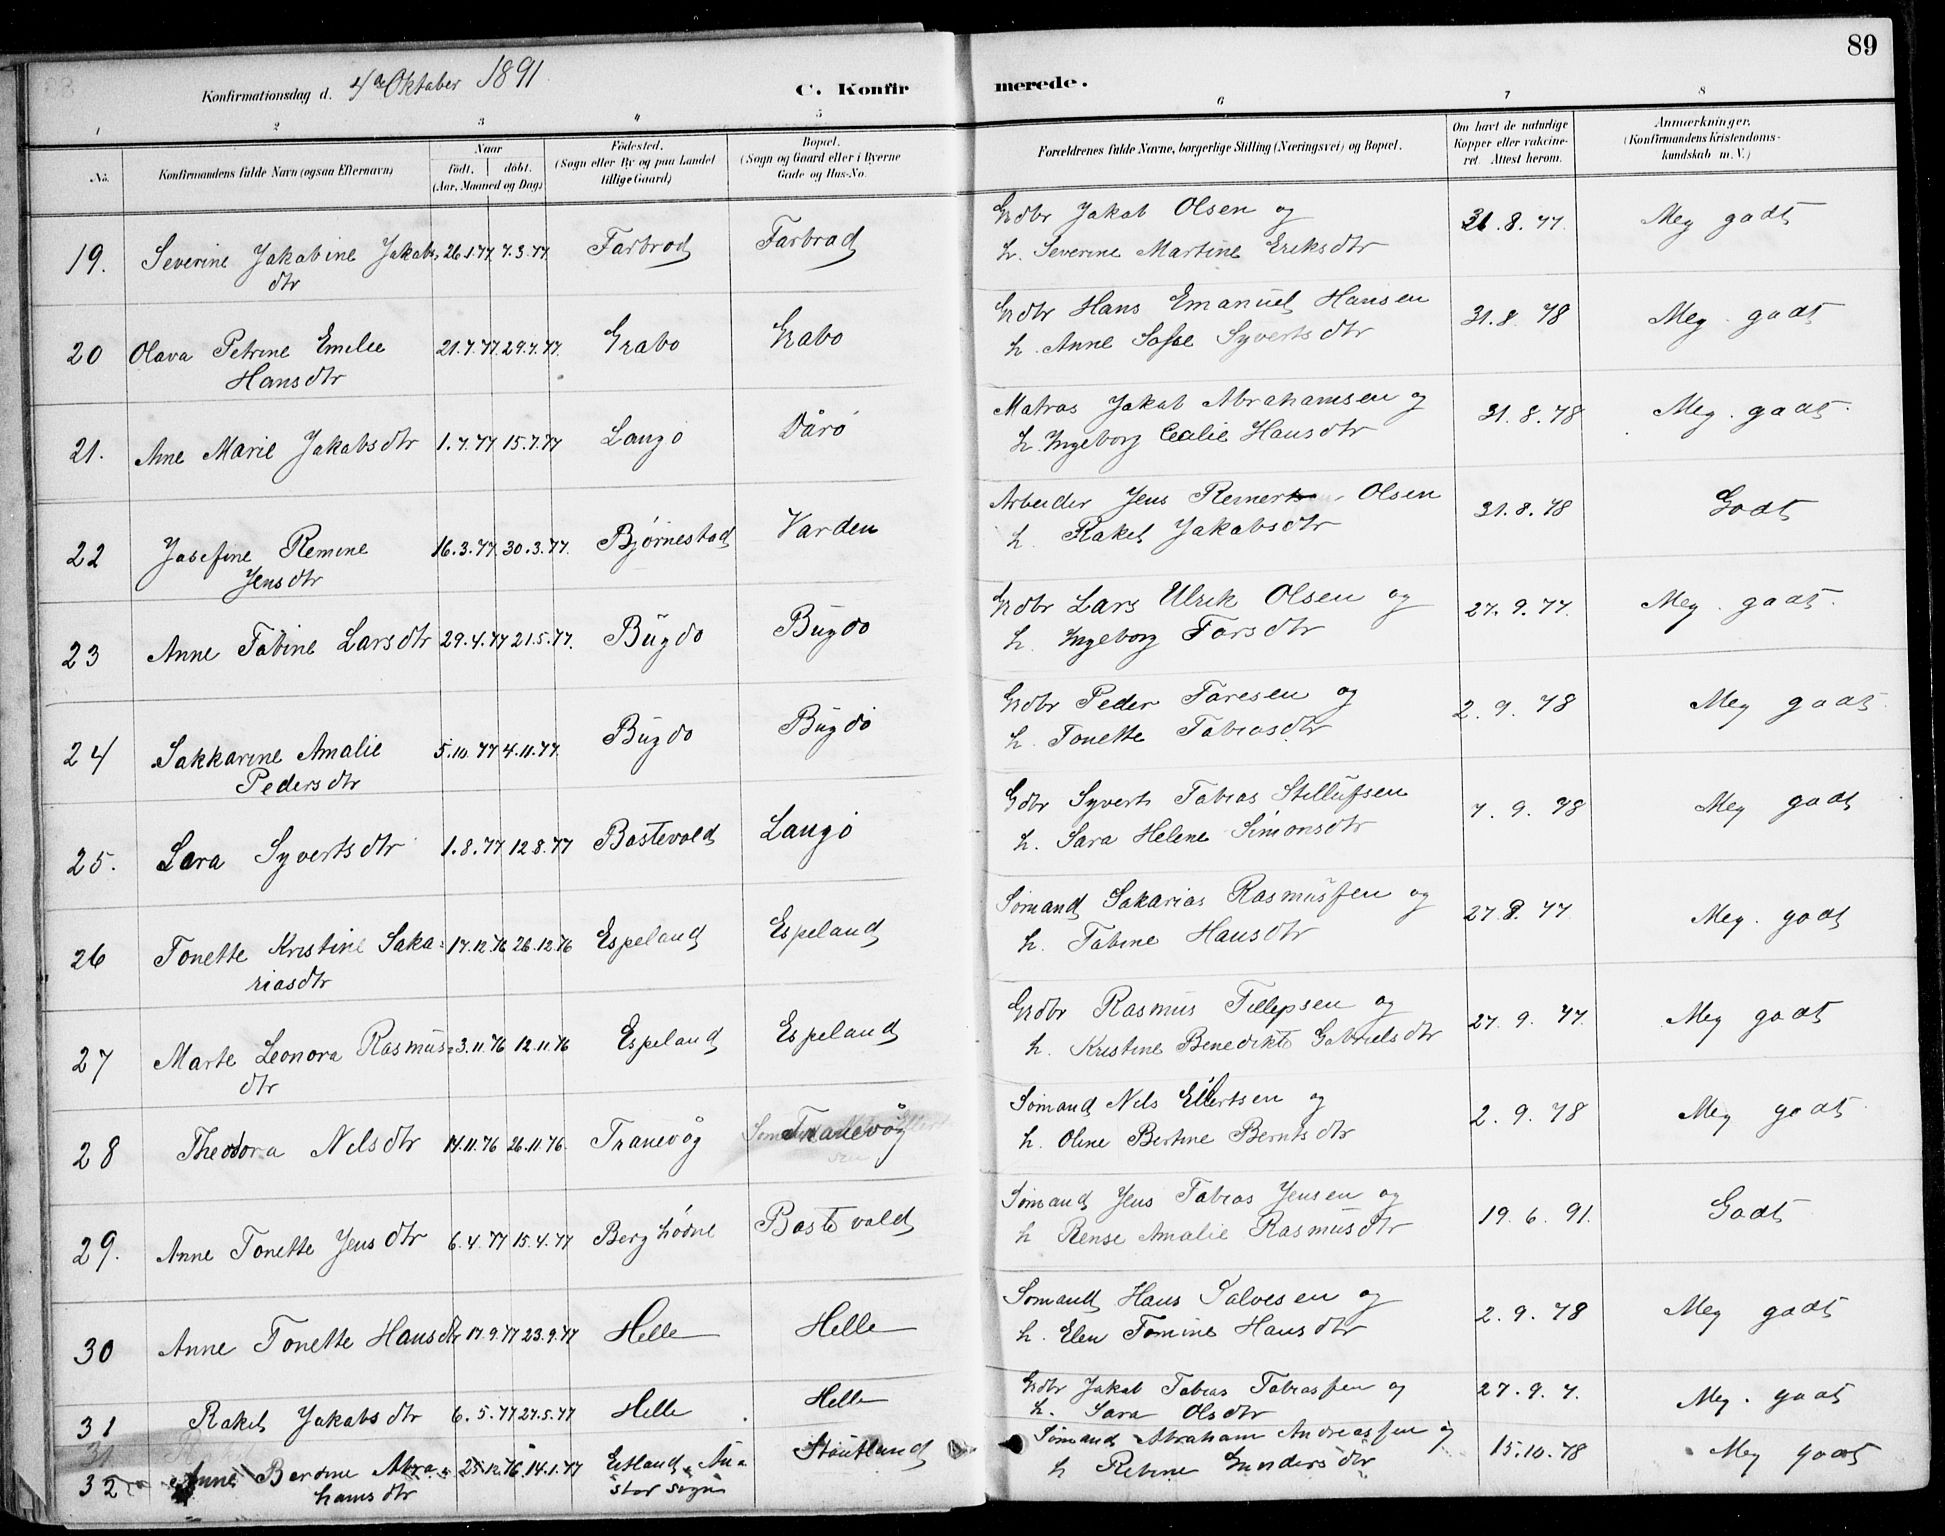 89
Konfirmationsdag d. 4de Oktober 1891. C. Konfirmerede.
1 2 3 4 5 6 7 8
No. Konfirmandens fulde Navn (ogsaa Efternavn) Naar født. døbt. (Aar, Maaned og Dag) Fødested. (Sogn eller By og paa Landet tillige Gaard) Bopæl. (Sogn og Gaard eller i Byerne Gade og Hus-No. Forældrenes fulde Navne, borgerlige Stilling (Næringsvei) og Bopæl. Om havt de naturlige Kopper eller vakcineret. Attest herom. Anmærkninger. (Konfirmandens Kristendomskundskab m. V.)
19. Severine Jakobine Jakobs 26.1.77 7.3.77 Farbrod Farbrod Grdbr Jakob Olsen og 31.8.77. Meg godt
dtr h. Severine Martine Eriksdtr
20 Olava Petrine Emilie 21.7.77 29.7.77. Grabo Grabo Grdbr Hans Emanuel Hansen 31.8.78 Meg. godt
Hansdtr h. Anne Sofie Syvertsdtr
21. Ane Marie Jakobsdtr 1.7.77 15.7.77 Langø Dårø Matros Jakob Abrahamsen og 31.8.78 Meg. godt.
h. Ingeborg Cecilie Hansdtr
22 Josefine Remine 16.3.77 30.3.77. Bjørnestad Varden Arbeider Jens Reinert Olsen 31.8.78 Godt
Jensdtr h. Rakel Jakobsdtr
23 Anne Tobine Larsdtr 29.4.77 21.5.77. Bugdø Bugdø Grdbr Lars Ulrik Olsen og 27.9.77. Meg. godt.
h. Ingeborg Torsdtr
24 Sakkarine Amalie 5.10.77 4.11.77. Bugdø Bugdø Grdbr Peder Toresen og 2.9.78 Meg godt
Pedersdtr h. Tonette Tobiasdtr
25. Sara Syvertsdtr 1.8.77 12.8.77 Bostevold Langø Gdbr Syvert Tobias Stellufsen 7.9.78 Meg godt
h. Sara Helene Simonsdtr
26 Tonette Kristine Saka= 17.12.76 26.12.76 Espeland Espeland Sømand Sakarias Rasmussen og 27.8.77 Meg. godt
riasdtr h. Tobine Hansdtr
27 Marte Leonora Rasmus= 3.11.76 12.11.76 Espeland Espeland Grdbr Rasmus Tellepsen og 27.9.77. Meg godt
dtr h. Kristine Benedikte Gabrielsdtr
28 Theodora Nilsdtr 14.11.76 26.11.76. Tranevåg Tranevåg Sømand Nils Eilertsen og 2.9.78 Meg godt
h. Oline Bertine Berntsdtr
29. Anne Tonette Jensdtr 6.4.77 15.4.77 Berghødne Bostevold Sømand Jens Tobias Jensen og 19.6.91. Godt
h Rense Amalie Rasmusdtr
30 Anne Tonette Hansdtr 17.9.77 23.9.77 Helle Helle Sømand Hans Salvesen og 2.9.78 Meg godt
h. Elen Tomine Hansdtr
31 Rakel Jakobsdtr 6.5.77 27.5.77 Helle Helle Grdbr Jakob Tobias Tobiassen og 27.9.7. Meg. godt
h. Sara Olsdtr
32 Anne Berdine Abra= 25.12.76 14.1.77 Sømand Abraham Andreassen og 15.10.78 Meg godt
hamsdtr h Rebine Gundersdtr